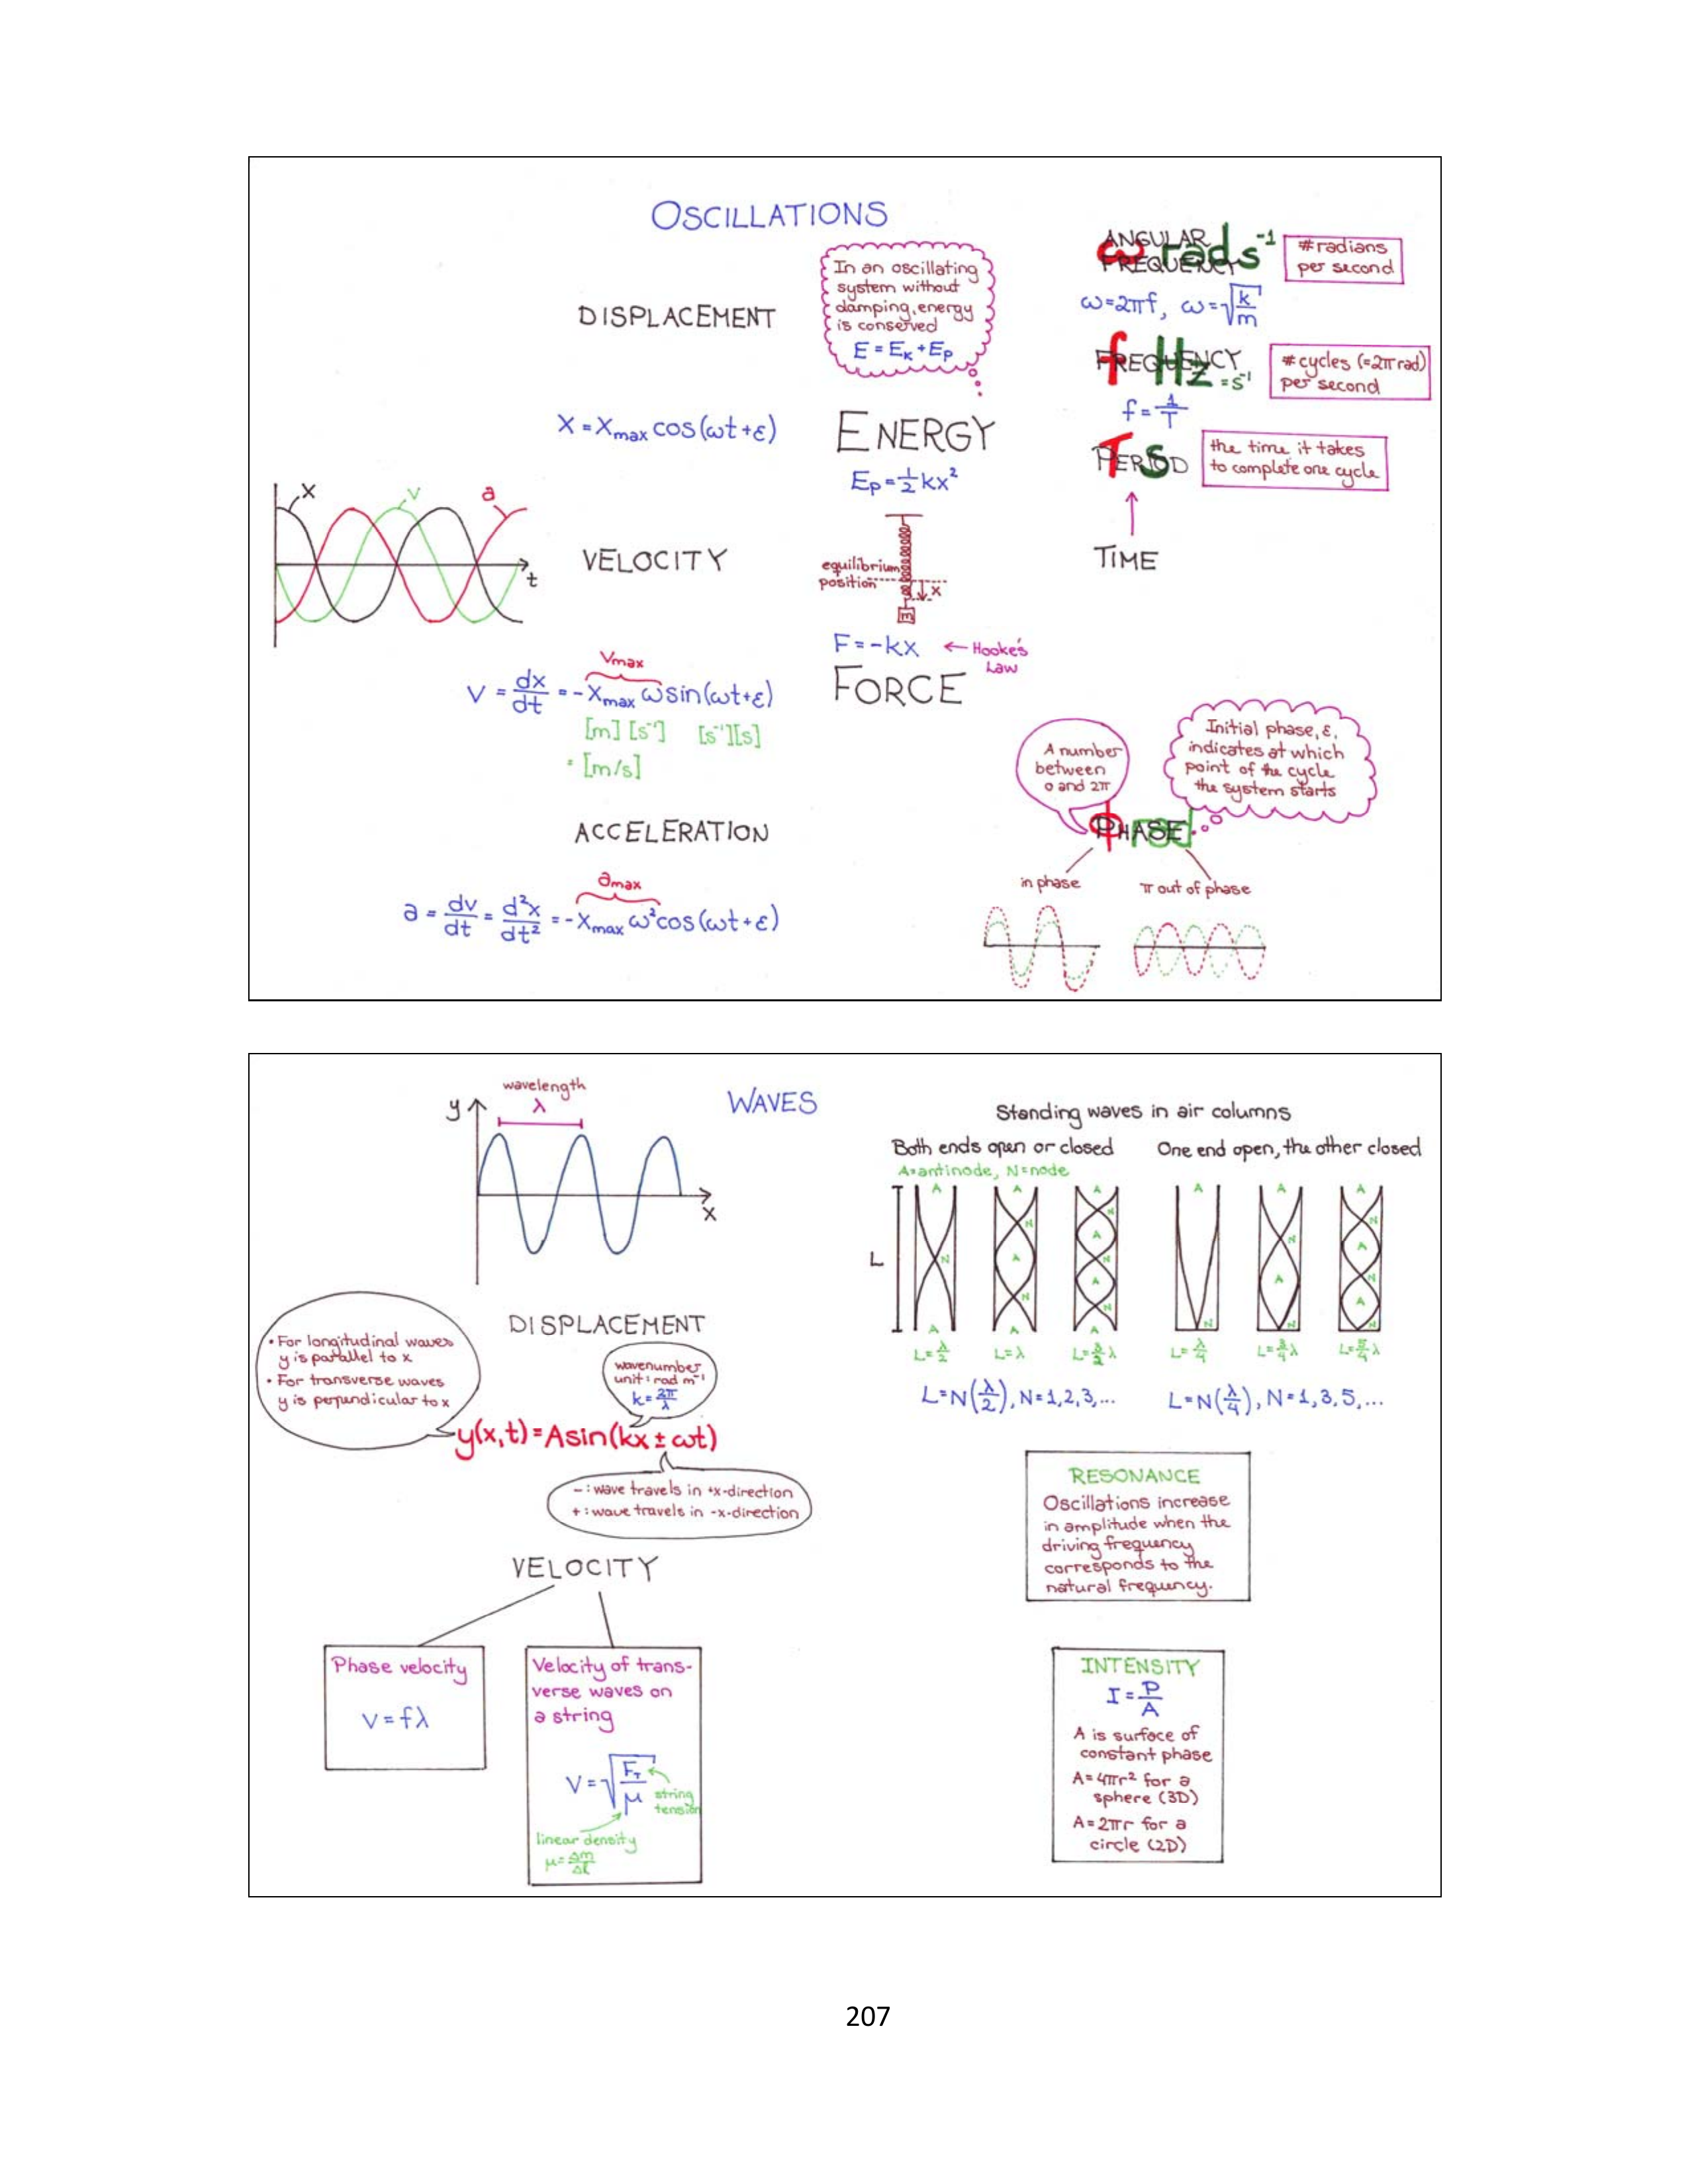 OSCILLATIONS
DISPLACEMENT
x = x_max cos(ωt+ε)
x
v
a
t
VELOCITY
v_max
v = dx/dt = -x_max ω sin(ωt+ε)
[m] [s⁻¹] [s⁻¹][s]
= [m/s]
ACCELERATION
a_max
a = dv/dt = d²x/dt² = -x_max ω² cos(ωt+ε)
In an oscillating
system without
damping, energy
is conserved
E = E_K + E_P
ENERGY
E_P = ½ kx²
equilibrium
position
x
m
F = -kx ← Hooke's
Law
FORCE
ANGULAR
FREQUENCY
ω rad s⁻¹
# radians
per second
ω=2πf, ω=√(k/m)
FREQUENCY
f Hz = s⁻¹
# cycles (=2π rad)
per second
f = 1/T
PERIOD
T s
the time it takes
to complete one cycle
TIME
A number
between
0 and 2π
Initial phase, ε,
indicates at which
point of the cycle
the system starts
PHASE
φ rad
in phase
π out of phase
WAVES
wavelength
λ
y
x
DISPLACEMENT
• For longitudinal waves
y is parallel to x
• For transverse waves
y is perpendicular to x
wavenumber
unit: rad m⁻¹
k = 2π/λ
y(x,t) = A sin(kx ± ωt)
- : wave travels in +x-direction
+ : wave travels in -x-direction
VELOCITY
Phase velocity
v = fλ
Velocity of trans-
verse waves on
a string
v = √(F_T/μ)
string
tension
linear density
μ = Δm/Δℓ
Standing waves in air columns
Both ends open or closed
A=antinode, N=node
One end open, the other closed
L
A A A A A A
N N N N N N
A A A A
N N N N
A A
N N N N
A A A
L=λ/2 L=λ L=3/2 λ L=λ/4 L=3/4 λ L=5/4 λ
L=N(λ/2), N=1,2,3,...
L=N(λ/4), N=1,3,5,...
RESONANCE
Oscillations increase
in amplitude when the
driving frequency
corresponds to the
natural frequency.
INTENSITY
I = P/A
A is surface of
constant phase
A=4πr² for a
sphere (3D)
A=2πr for a
circle (2D)
207